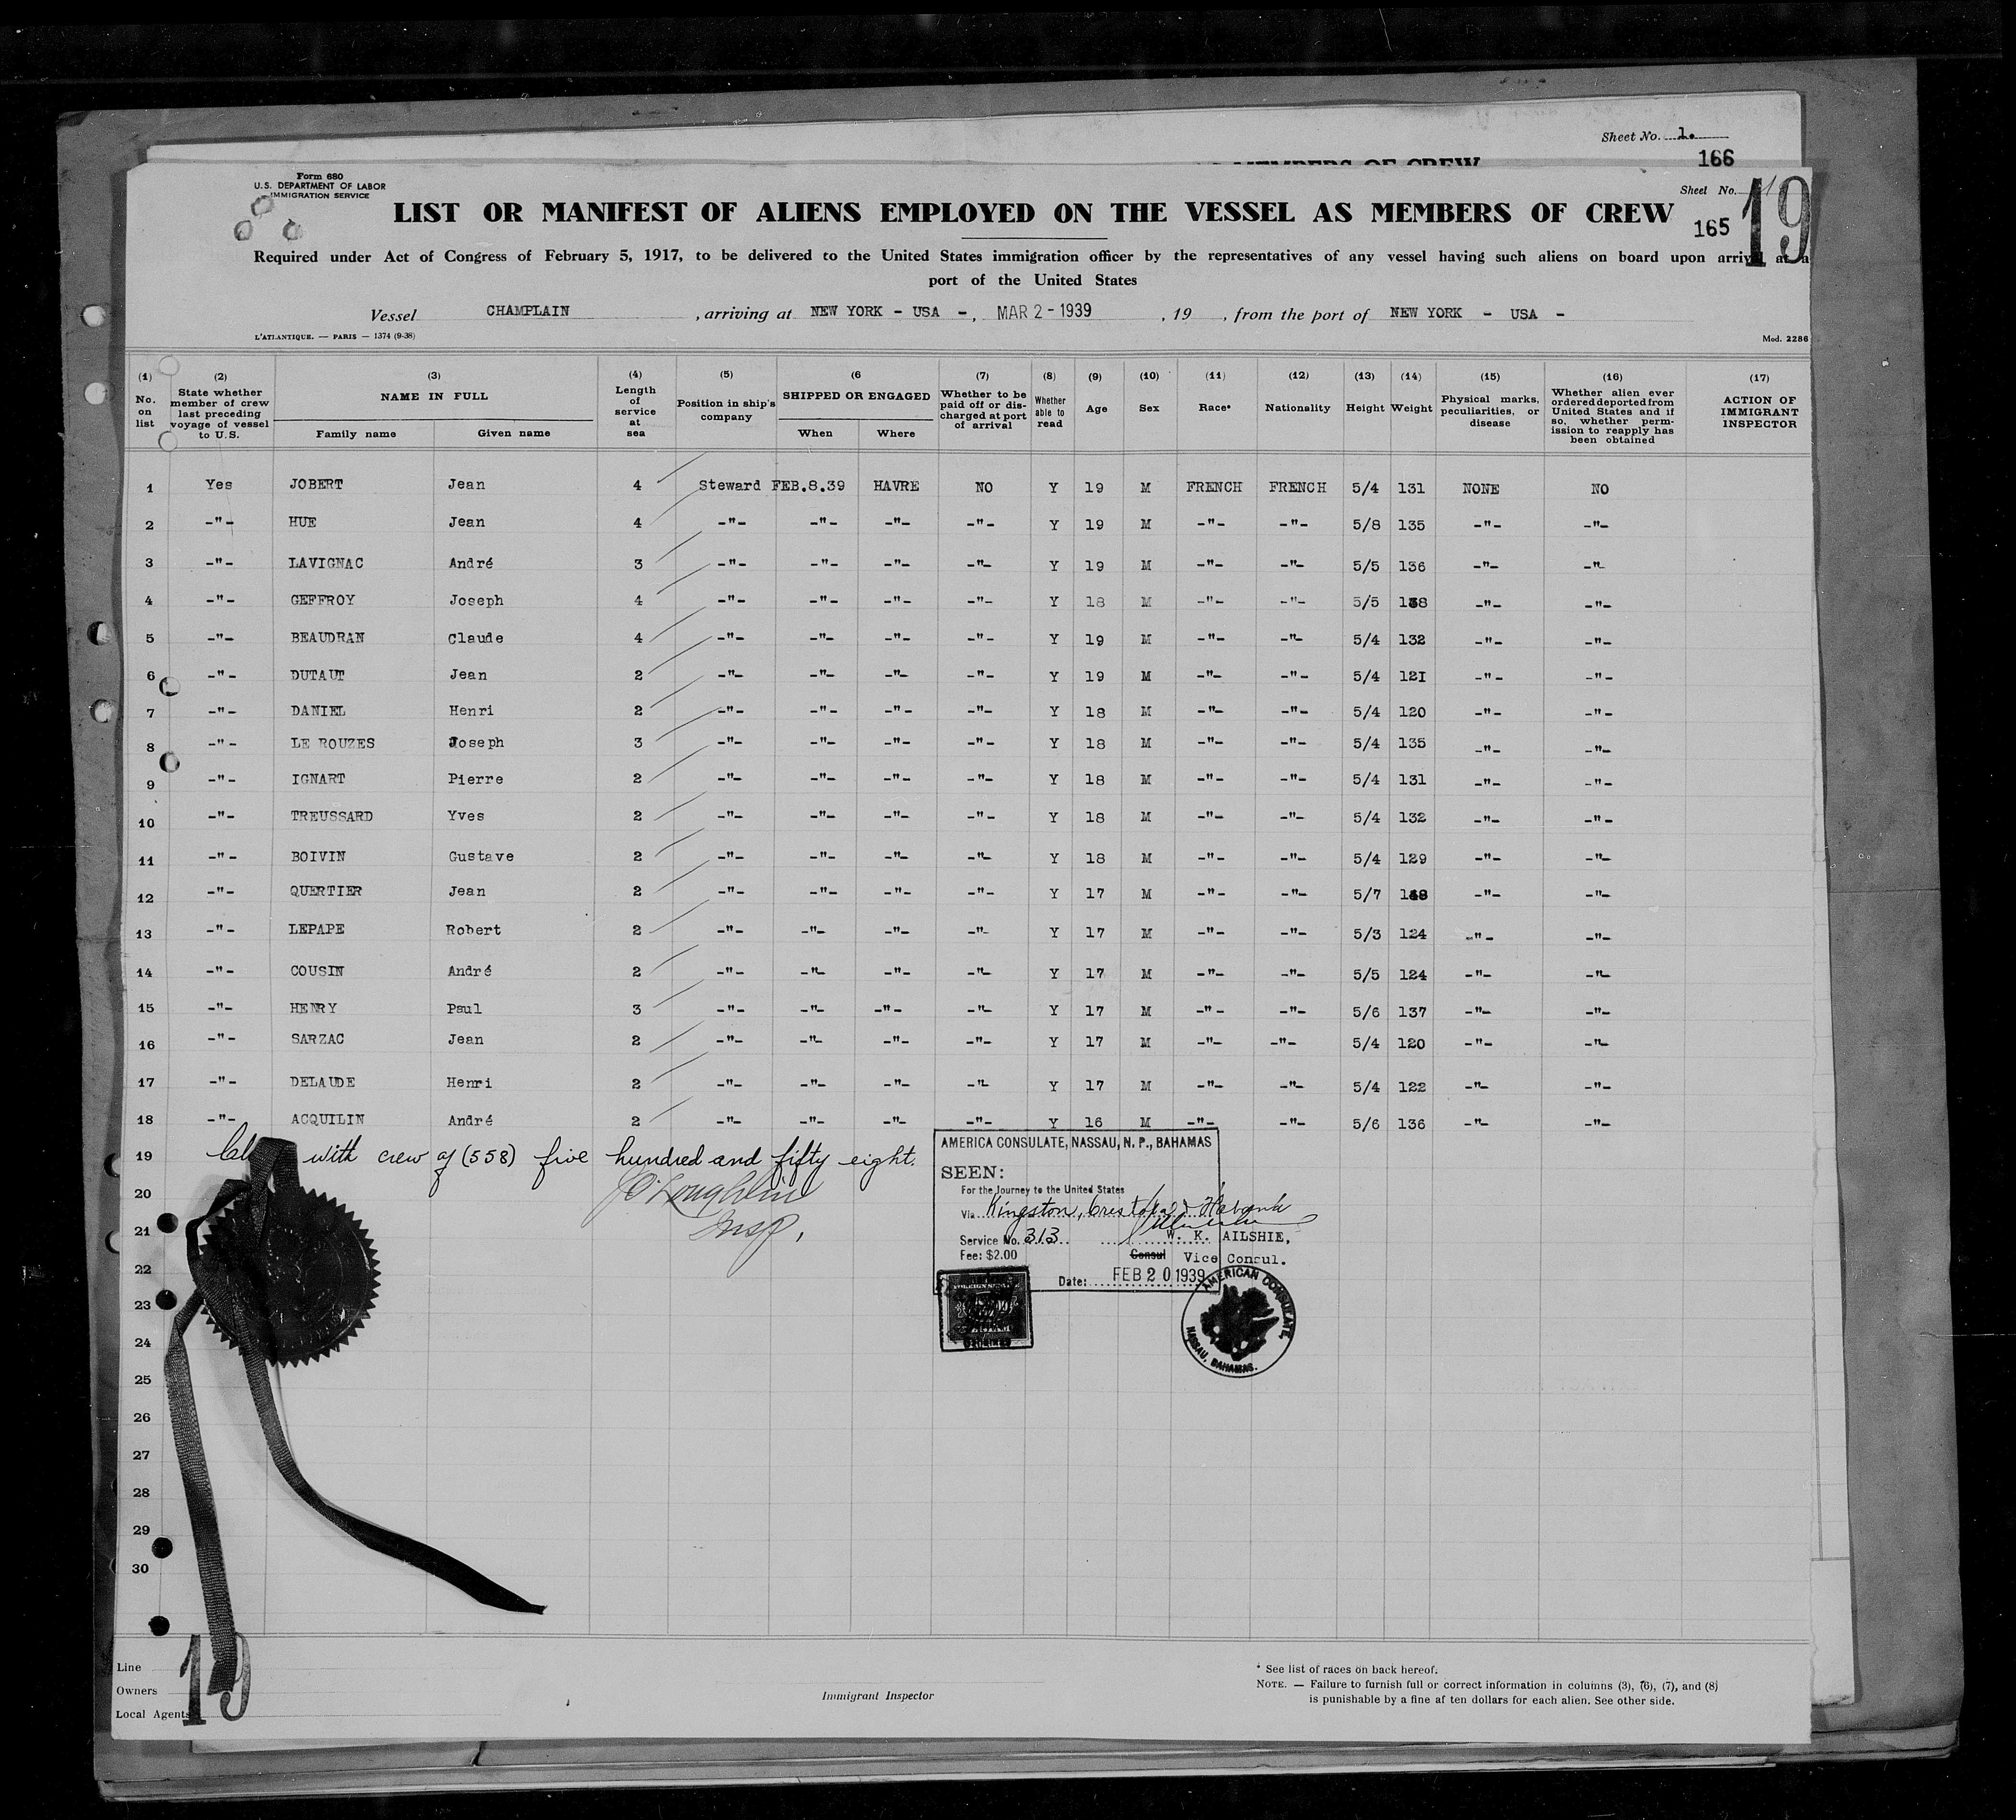 Sheet No. 1.
166
MEMBERS OF CREW
Form 680
U.S. DEPARTMENT OF LABOR
IMMIGRATION SERVICE
Sheet No.
19
165
LIST OR MANIFEST OF ALIENS EMPLOYED ON THE VESSEL AS MEMBERS OF CREW
Required under Act of Congress of February 5, 1917, to be delivered to the United States immigration officer by the representatives of any vessel having such aliens on board upon arrival at a
port of the United States
Vessel CHAMPLAIN , arriving at NEW YORK - USA -, MAR 2 - 1939 , 19 , from the port of NEW YORK - USA -
L'ATLANTIQUE. — PARIS — 1374 (9-38) Mod. 2286
(1) No. on list
(2) State whether member of crew last preceding voyage of vessel to U.S.
(3) NAME IN FULL
Family name Given name
(4) Length of service at sea
(5) Position in ship's company
(6 SHIPPED OR ENGAGED
When Where
(7) Whether to be paid off or discharged at port of arrival
(8) Whether able to read
(9) Age
(10) Sex
(11) Race*
(12) Nationality
(13) Height
(14) Weight
(15) Physical marks, peculiarities, or disease
(16) Whether alien ever ordered deported from United States and if so, whether permission to reapply has been obtained
(17) ACTION OF IMMIGRANT INSPECTOR
1 Yes JOBERT Jean 4 Steward FEB.8.39 HAVRE NO Y 19 M FRENCH FRENCH 5/4 131 NONE NO
2 -"- HUE Jean 4 -"- -"- -"- -"- Y 19 M -"- -"- 5/8 135 -"- -"-
3 -"- LAVIGNAC André 3 -"- -"- -"- -"- Y 19 M -"- -"- 5/5 136 -"- -"-
4 -"- GEFFROY Joseph 4 -"- -"- -"- -"- Y 18 M -"- -"- 5/5 138 -"- -"-
5 -"- BEAUDRAN Claude 4 -"- -"- -"- -"- Y 19 M -"- -"- 5/4 132 -"- -"-
6 -"- DUTAUT Jean 2 -"- -"- -"- -"- Y 19 M -"- -"- 5/4 12I -"- -"-
7 -"- DANIEL Henri 2 -"- -"- -"- -"- Y 18 M -"- -"- 5/4 120 -"- -"-
8 -"- LE ROUZES Joseph 3 -"- -"- -"- -"- Y 18 M -"- -"- 5/4 135 -"- -"-
9 -"- IGNART Pierre 2 -"- -"- -"- -"- Y 18 M -"- -"- 5/4 131 -"- -"-
10 -"- TREUSSARD Yves 2 -"- -"- -"- -"- Y 18 M -"- -"- 5/4 132 -"- -"-
11 -"- BOIVIN Gustave 2 -"- -"- -"- -"- Y 18 M -"- -"- 5/4 129 -"- -"-
12 -"- QUERTIER Jean 2 -"- -"- -"- -"- Y 17 M -"- -"- 5/7 -"- -"-
13 -"- LEPAPE Robert 2 -"- -"- -"- -"- Y 17 M -"- -"- 5/3 124 -"- -"-
14 -"- COUSIN André 2 -"- -"- -"- -"- Y 17 M -"- -"- 5/5 124 -"- -"-
15 -"- HENRY Paul 3 -"- -"- -"- -"- Y 17 M -"- -"- 5/6 137 -"- -"-
16 -"- SARZAC Jean 2 -"- -"- -"- -"- Y 17 M -"- -"- 5/4 120 -"- -"-
17 -"- DELAUDE Henri 2 -"- -"- -"- -"- Y 17 M -"- -"- 5/4 122 -"- -"-
18 -"- ACQUILIN André 2 -"- -"- -"- -"- Y 16 M -"- -"- 5/6 136 -"- -"-
19 with crew of (558) five hundred and fifty eight.
20
Insp.
21
22
23
24
25
26
27
28
29
30
AMERICA CONSULATE, NASSAU, N. P., BAHAMAS
SEEN:
For the Journey to the United States
Via Kingston, Cristobal & Habana
Service No. 313
W. K. AILSHIE,
Fee: $2.00 Consul Vice Consul.
Date: FEB 20 1939
AMERICAN CONSULATE,
NASSAU, BAHAMAS.
19
Line
Owners
Local Agents
Immigrant Inspector
* See list of races on back hereof.
NOTE. — Failure to furnish full or correct information in columns (3), (6), (7), and (8)
is punishable by a fine af ten dollars for each alien. See other side.